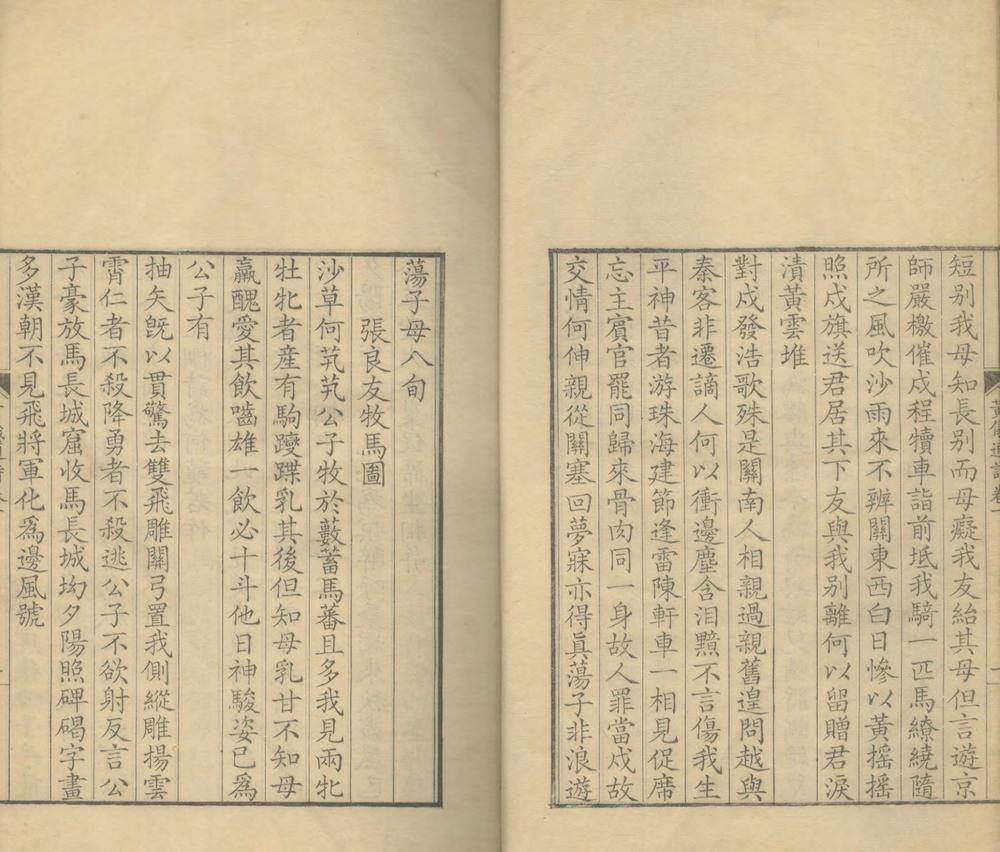 短别我母知長别而母癡我友紿其母但言遊京
師嚴檄催戍程犢車詣前坻我騎一匹馬繚繞隨
所之風吹沙雨來不辨關東西白日慘以黃摇摇
照戍旗送君居其下友與我别離何以留贈君淚
漬黃雲堆
對戍發浩歌殊是關南人相親過親舊遑問越與
秦客非遷謫人何以衝邊塵含泪黯不言傷我生
平神昔者游珠海建節逢雷陳軒車一相見促席
忘主賓官罷同歸來骨肉同一身故人罪當戍故
交情何伸親從關塞回夢寐亦得眞蕩子非浪遊
蕩子母八旬
張良友牧馬圖
沙草何芃芃公子牧於藪蓄馬蕃且多我見兩牝
牡牝者産有駒躞蹀乳其後但知母乳甘不知母
羸醜愛其飲嚙雄一飲必十斗他日神駿姿已爲
公子有
抽矢旣以貫驚去雙飛雕關弓置我側縱雕揚雲
霄仁者不殺降勇者不殺逃公子不欲射反言公
子豪放馬長城窟收馬長城坳夕陽照碑碣字畫
多漢朝不見飛將軍化爲邊風號